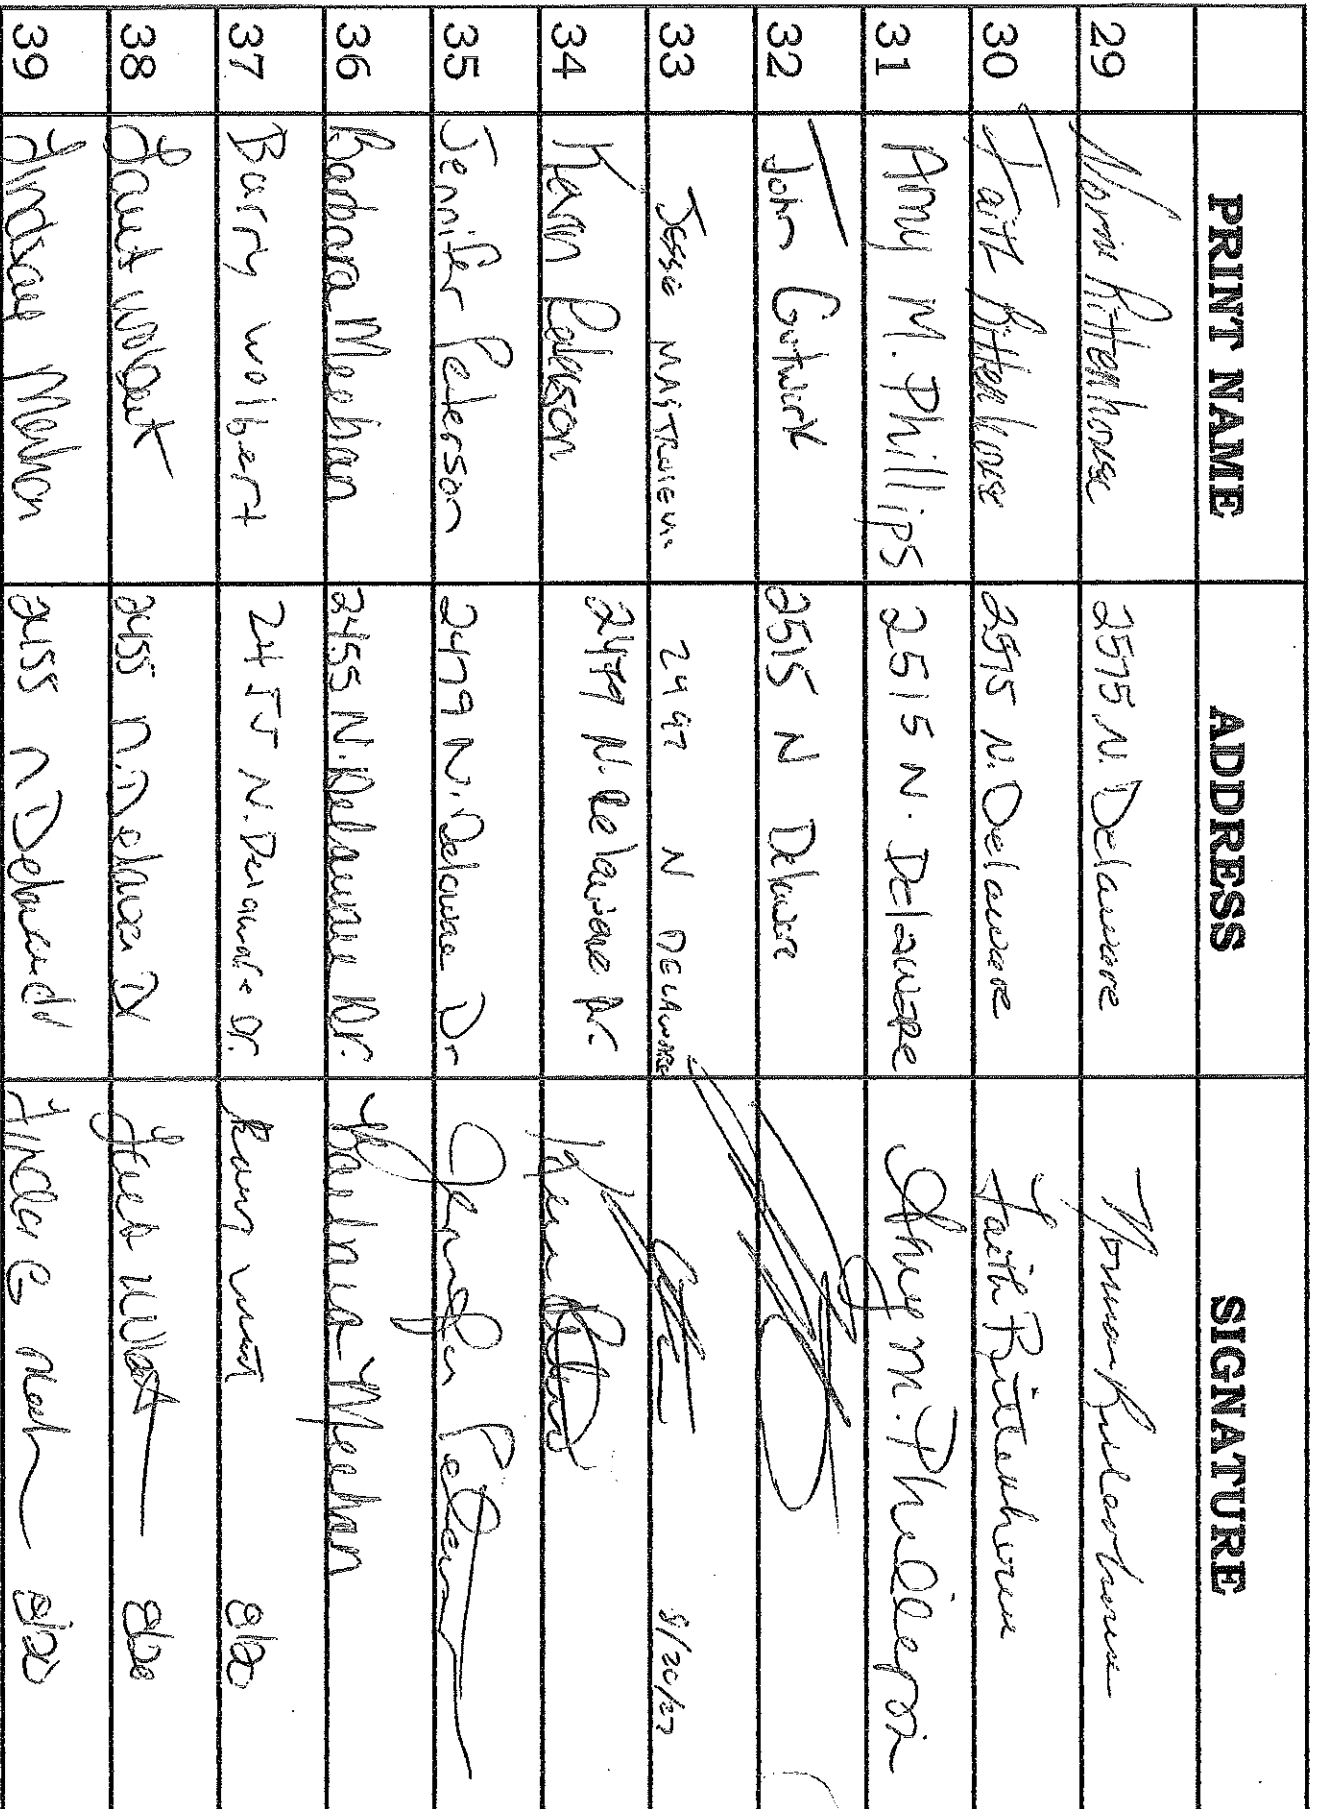 PRINT NAME ADDRESS SIGNATURE
29 Norm Rittenhouse 2575 N. Delaware Norman Rittenhouse
30 Faith Rittenhouse 2575 N. Delaware Faith Rittenhouse
31 Amy M. Phillips 2515 N. Delaware Amy M. Phillips
32 John Gutwirk 2515 N Delaware
33 Jessie 2497 N Delaware 8/20/27
34 Karin Peterson 2479 N. Delaware Dr.
35 Jennifer Peterson 2479 N. Delaware Dr Jennifer Peterson
36 Barbara Meehan 2455 N. Delaware Dr. Barbara Meehan
37 Barry Wolbert 2455 N. Delaware Dr. 8/20
38 Janet Wolbert 2455 N. Delaware Dr 8/20
39 Lindsay 2455 N Delaware dr 8/20